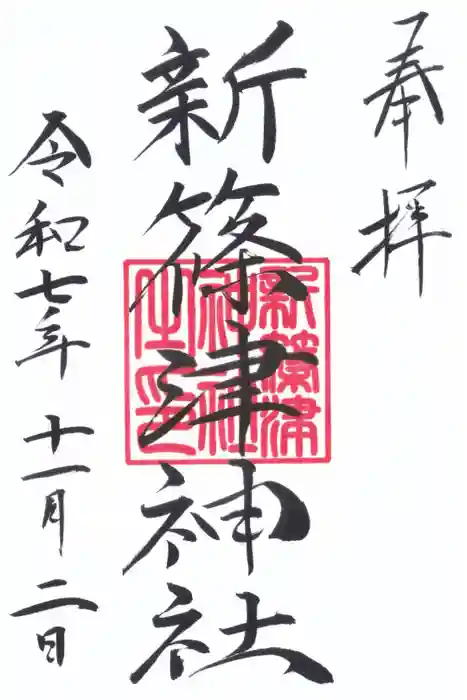 奉拝
新篠津神社
新篠津
神社
之印
令和七年 十一月二日